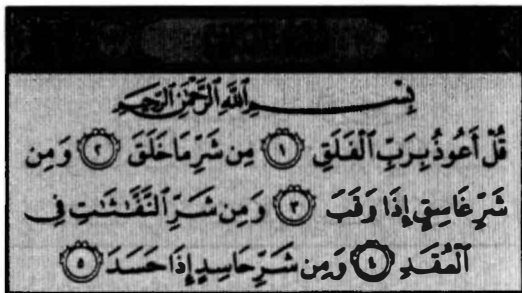 بِسْمِ اللَّهِ الرَّحْمَٰنِ الرَّحِيمِ
قُلْ أَعُوذُ بِرَبِّ الْفَلَقِ ١ مِن شَرِّ مَا خَلَقَ ٢ وَمِن
شَرِّ غَاسِقٍ إِذَا وَقَبَ ٣ وَمِن شَرِّ النَّفَّٰثَٰتِ فِي
الْعُقَدِ ٤ وَمِن شَرِّ حَاسِدٍ إِذَا حَسَدَ ٥